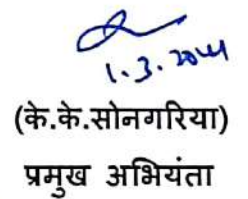 1.3.2014
(के.के.सोनगरिया)
प्रमुख अभियंता